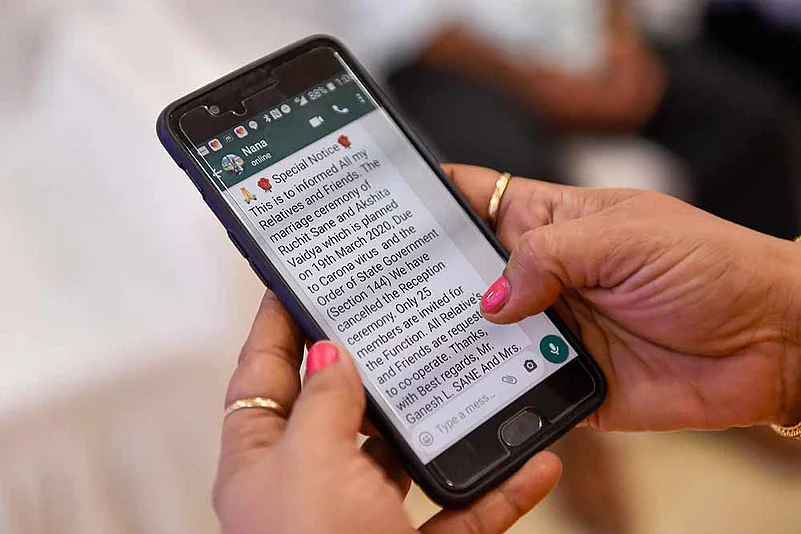 88% 1:0
Nana
online
🙏 🌹 Special Notice 🌹
This is to informed All my
Relatives and Friends. The
marriage ceremony of
Ruchit Sane and Akshita
Vaidya which is planned
on 19th March 2020, Due
to Carona virus and the
Order of State Government
(Section 144) We have
cancelled the Reception
ceremony. Only 25
members are invited for
the Function. All Relative's
and Friends are request
to co-operate. Thanks,
with Best regards, Mr
Ganesh L. SANE And Mrs.
Type a mess...